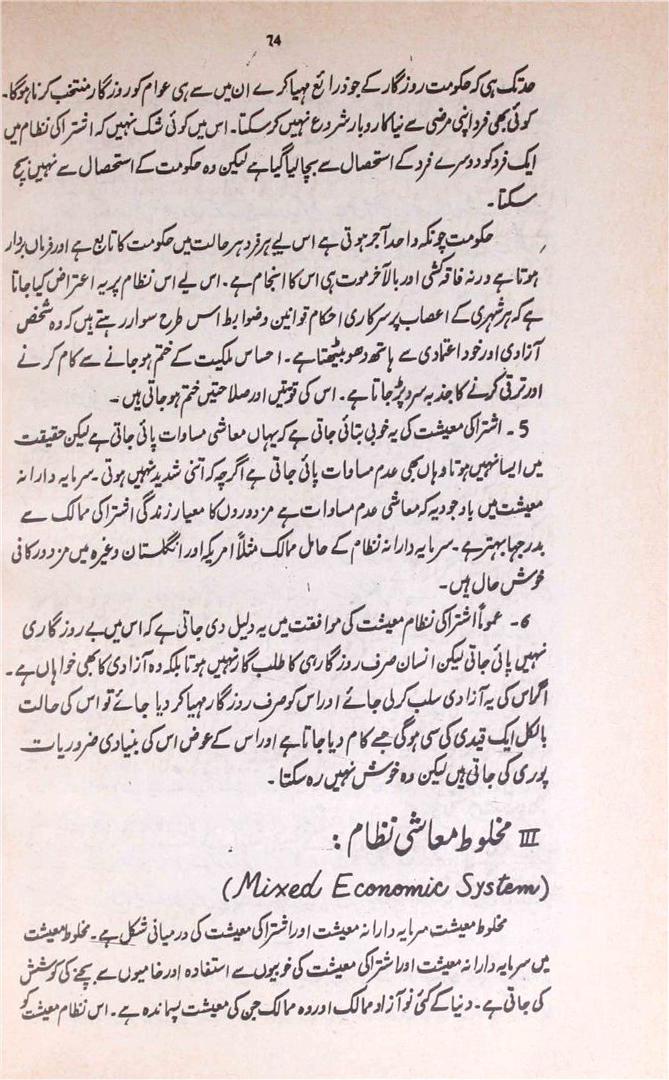 74
حد تک ہی کہ حکومت روزگار کے جو ذرائع مہیا کرے ان میں سے ہی عوام کو روزگار منتخب کرنا ہوگا۔
کوئی بھی فرد اپنی مرضی سے نیا کاروبار شروع نہیں کر سکتا۔ اس میں کوئی شک نہیں کہ اشتراکی نظام میں
ایک فرد کو دوسرے فرد کے استحصال سے بچا لیا گیا ہے لیکن وہ حکومت کے استحصال سے نہیں بچ
سکتا۔
حکومت چونکہ واحد آجر ہوتی ہے اس لیے ہر فرد ہر حالت میں حکومت کا تابع ہے اور فرماں بردار
ہوتا ہے ورنہ فاقہ کشی اور بالآخر موت ہی اس کا انجام ہے۔ اس لیے اس نظام پر یہ اعتراض کیا جاتا
ہے کہ ہر شہری کے اعصاب پر سرکاری احکام قوانین و ضوابط اس طرح سوار رہتے ہیں کہ وہ شخص
آزادی اور خود اعتمادی سے ہاتھ دھو بیٹھتا ہے۔ احساس ملکیت کے ختم ہو جانے سے کام کرنے
اور ترقی کرنے کا جذبہ سرد پڑ جاتا ہے۔ اس کی قوتیں اور صلاحتیں ختم ہو جاتی ہیں۔
5۔ اشتراکی معیشت کی یہ خوبی بتائی جاتی ہے کہ یہاں معاشی مساوات پائی جاتی ہے لیکن حقیقت
میں ایسا نہیں ہوتا وہاں بھی عدم مساوات پائی جاتی ہے اگرچہ کہ اتنی شدید نہیں ہوتی۔ سرمایہ دارانہ
معیشت میں باوجود یہ کہ معاشی عدم مساوات ہے مزدوروں کا معیار زندگی اشتراکی ممالک سے
بدرجہا بہتر ہے۔ سرمایہ دارانہ نظام کے حامل ممالک مثلاً امریکہ اور انگلستان وغیرہ میں مزدور کافی
خوش حال ہیں۔
6۔ عموماً اشتراکی نظام معیشت کی موافقت میں یہ دلیل دی جاتی ہے کہ اس میں بے روزگاری
نہیں پائی جاتی لیکن انسان صرف روزگار ہی کا طلب گار نہیں ہوتا بلکہ وہ آزادی کا بھی خواہاں ہے۔
اگر اس کی یہ آزادی سلب کر لی جائے اور اس کو صرف روزگار مہیا کر دیا جائے تو اس کی حالت
بالکل ایک قیدی کی سی ہوگی جسے کام دیا جاتا ہے اور اس کے عوض اس کی بنیادی ضروریات
پوری کی جاتی ہیں لیکن وہ خوش نہیں رہ سکتا۔
III مخلوط معاشی نظام :
(Mixed Economic System)
مخلوط معیشت سرمایہ دارانہ معیشت اور اشتراکی معیشت کی درمیانی شکل ہے۔ مخلوط معیشت
میں سرمایہ دارانہ معیشت اور اشتراکی معیشت کی خوبیوں سے استفادہ اور خامیوں سے بچنے کی کوشش
کی جاتی ہے۔ دنیا کے کئی نو آزاد ممالک اور وہ ممالک جن کی معیشت پسماندہ ہے۔ اس نظام معیشت کو